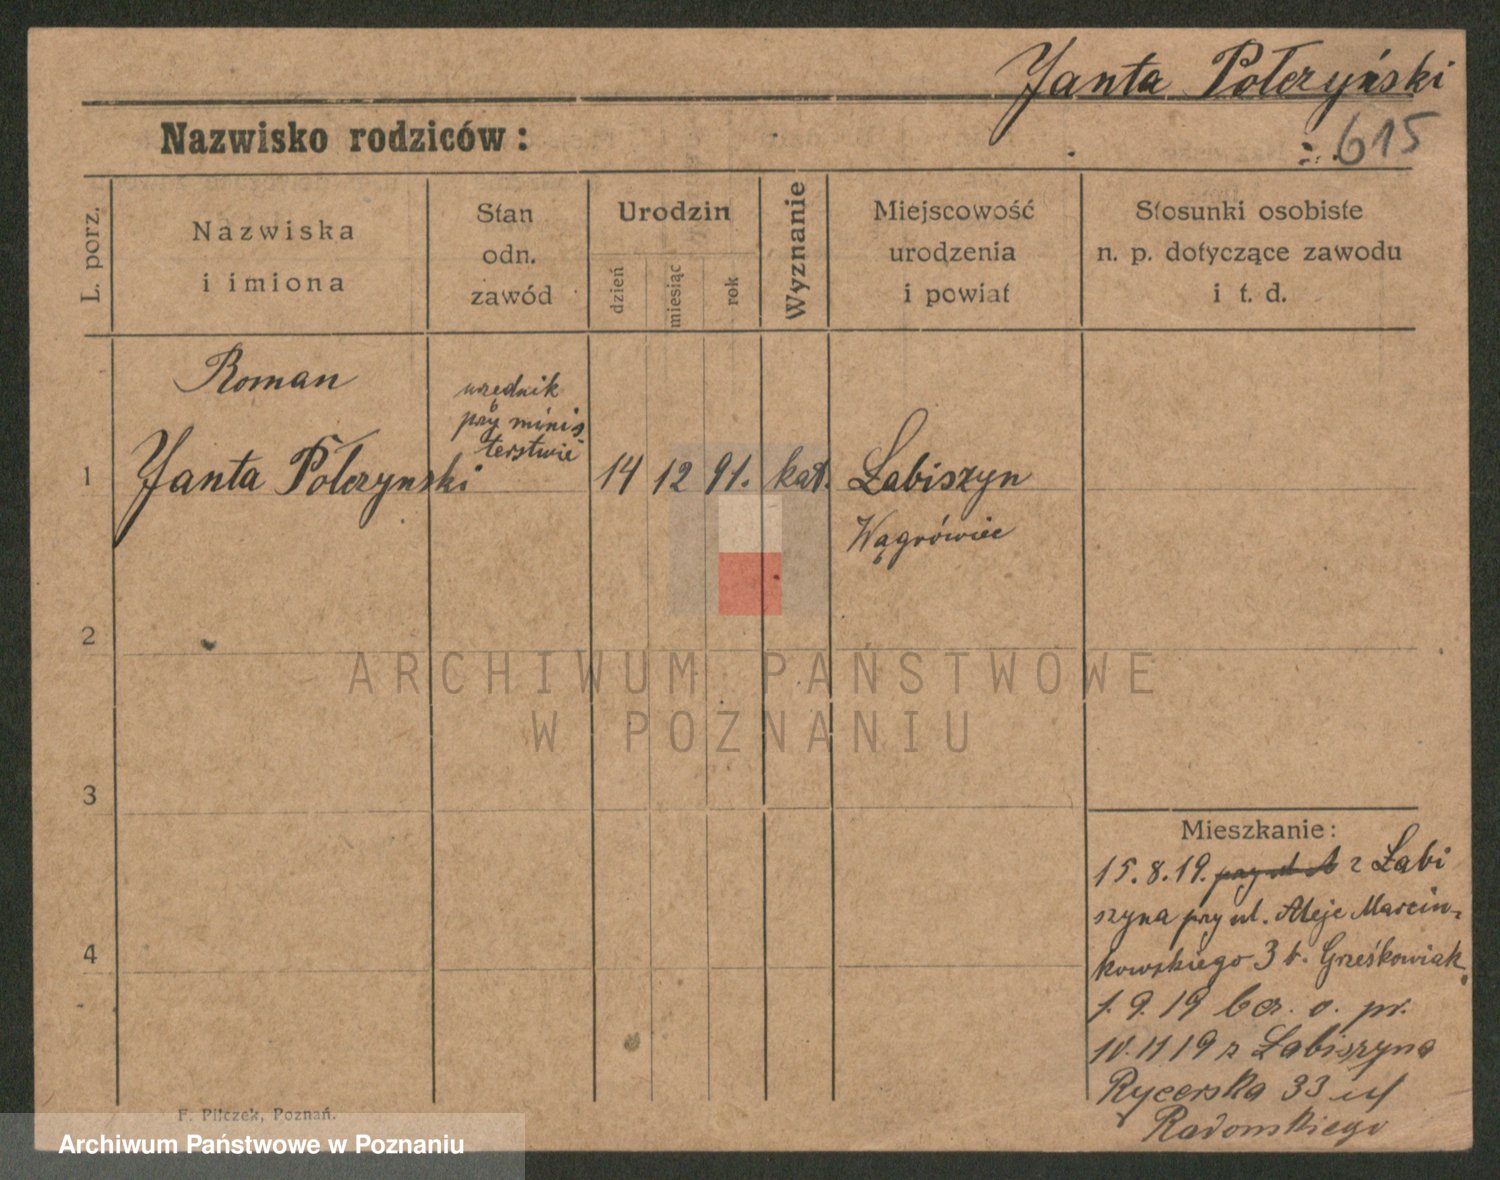 Janta Połczyński
615
Nazwisko rodziców:
L. porz.
Nazwiska
i imiona
Stan
odn.
zawód
Urodzin
dzień
miesiąc
rok
Wyznanie
Miejscowość
urodzenia
i powiat
Stosunki osobiste
n. p. dotyczące zawodu
i t. d.
Roman
urzędnik
przy minis
terstwie
1
Janta Połczynski
14
12
91.
kat.
Łabiszyn
Wągrówiec
2
ARCHIWUM PAŃSTWOWE
W POZNANIU
3
Mieszkanie:
15.8.19. z Łabi
szyna przy ul. Aleje Marcin-
4
kowskiego 3 b. Grześkowiak.
1.9.19 bez. o. pr.
10.11 19 z Łabiszyna
Rycerska 33 u
Radomskiego
F. Pilczek, Poznań.
Archiwum Państwowe w Poznaniu